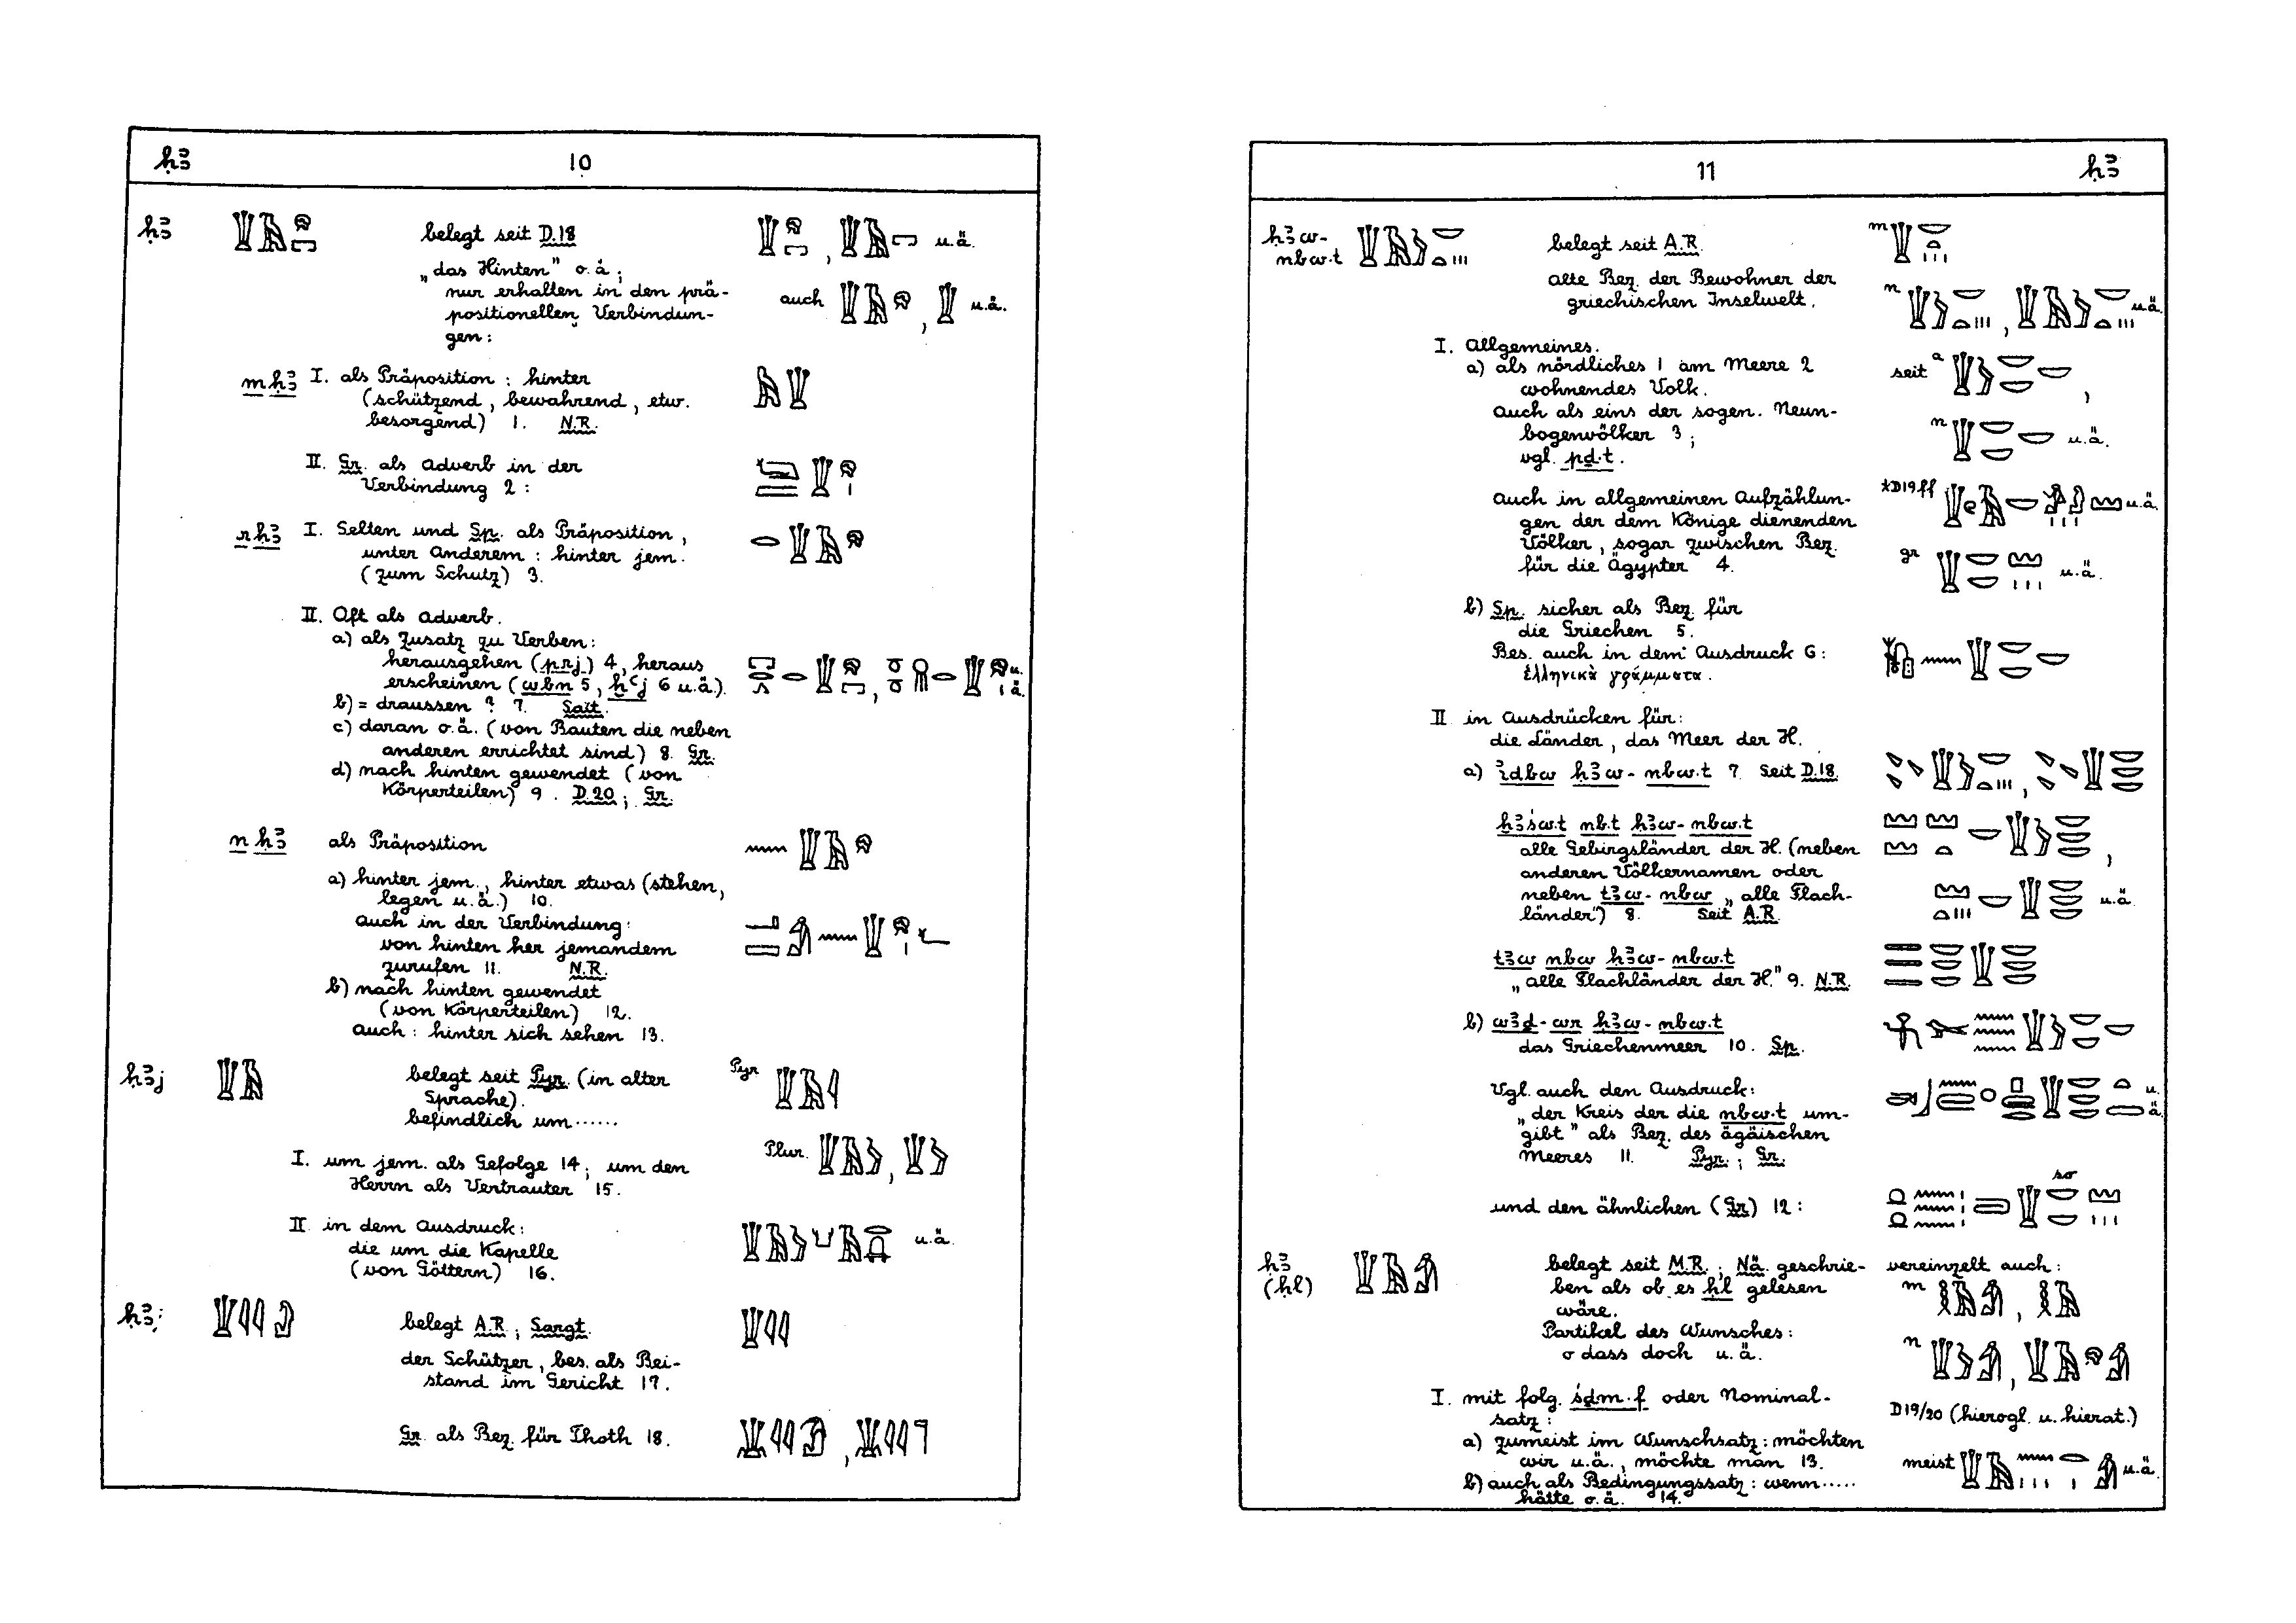 ḥꜣ 10
ḥꜣ belegt seit D.18 , u.ä.
„das Hinten" o.ä;
nur erhalten in den prä- auch , u.ä.
positionellen Verbindun-
gen:
m ḥꜣ I. als Präposition: hinter
(schützend, bewahrend, etw.
besorgend) 1. N.R.
II. Gr. als Adverb in der
Verbindung 2:
r ḥꜣ I. Selten und Sp. als Präposition,
unter Anderem: hinter jem.
(zum Schutz) 3.
II. Oft als Adverb.
a) als Zusatz zu Verben:
herausgehen (prj) 4, heraus
erscheinen (wbn 5, ḫꜥj 6 u.ä.). , u.ä.
b) = draussen ? 7. Sait.
c) daran o.ä. (von Bauten die neben
anderen errichtet sind) 8. Gr.
d) nach hinten gewendet (von
Körperteilen) 9. D.20; Gr.
n ḥꜣ als Präposition
a) hinter jem., hinter etwas (stehen,
legen u.ä.) 10.
auch in der Verbindung:
von hinten her jemandem
zurufen 11. N.R.
b) nach hinten gewendet
(von Körperteilen) 12.
auch: hinter sich sehen 13.
ḥꜣj belegt seit Pyr. (in alter Pyr
Sprache).
befindlich um ......
I. um jem. als Gefolge 14; um den Plur. ,
Herrn als Vertrauter 15.
II in dem Ausdruck:
die um die Kapelle u.ä.
(von Göttern) 16.
ḥꜣj belegt A.R.; Sargt.
der Schützer, bes. als Bei-
stand im Gericht 17.
Gr. als Bez. für Thoth 18. ,
11 ḥꜣ
ḥꜣw- belegt seit A.R. m
nbw.t
alte Bez. der Bewohner der
griechischen Inselwelt. n , u.ä.
I. Allgemeines.
a) als nördliches 1 am Meere 2 seit a ,
wohnendes Volk.
auch als eins der sogen. Neun-
bogenvölker 3; n u.ä.
vgl. pḏ.t.
auch in allgemeinen Aufzählun- *D19ff u.ä.
gen der dem Könige dienenden
Völker, sogar zwischen Bez.
für die Ägypter 4. gr u.ä.
b) Sp. sicher als Bez. für
die Griechen 5.
Bes. auch in dem Ausdruck 6:
ἑλληνικὰ γράμματα.
II in Ausdrücken für:
die Länder, das Meer der H.
a) idbw ḥꜣw-nbw.t 7. Seit D.18. ,
ḫꜣśw.t nb.t ḥꜣw-nbw.t
alle Gebirgsländer der H. (neben ,
anderen Völkernamen oder
neben tꜣw-nbw „alle Flach-
länder") 8. Seit A.R. u.ä.
tꜣw nbw ḥꜣw-nbw.t
„alle Flachländer der H." 9. N.R.
b) wꜣḏ-wr ḥꜣw-nbw.t
das Griechenmeer 10. Sp.
Vgl. auch den Ausdruck: u.ä.
„der Kreis der die nbw.t um-
gibt" als Bez. des ägäischen
Meeres 11. Pyr.; Gr.
und den ähnlichen (Gr.) 12: so
ḥꜣ belegt seit M.R.; Nä. geschrie- vereinzelt auch:
(ḥl) ben als ob es ḥl gelesen m ,
wäre.
Partikel des Wunsches:
o dass doch u.ä. n ,
I. mit folg. śḏm.f oder Nominal- D19/20 (hierogl. u. hierat.)
satz:
a) zumeist im Wunschsatz: möchten
wir u.ä., möchte man 13. meist u.ä.
b) auch als Bedingungssatz: wenn .....
hätte o.ä. 14.